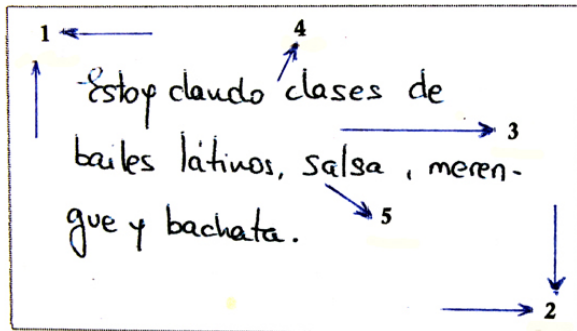 1
4
Estoy dando clases de
3
bailes látinos, salsa, meren-
5
gue y bachata.
2